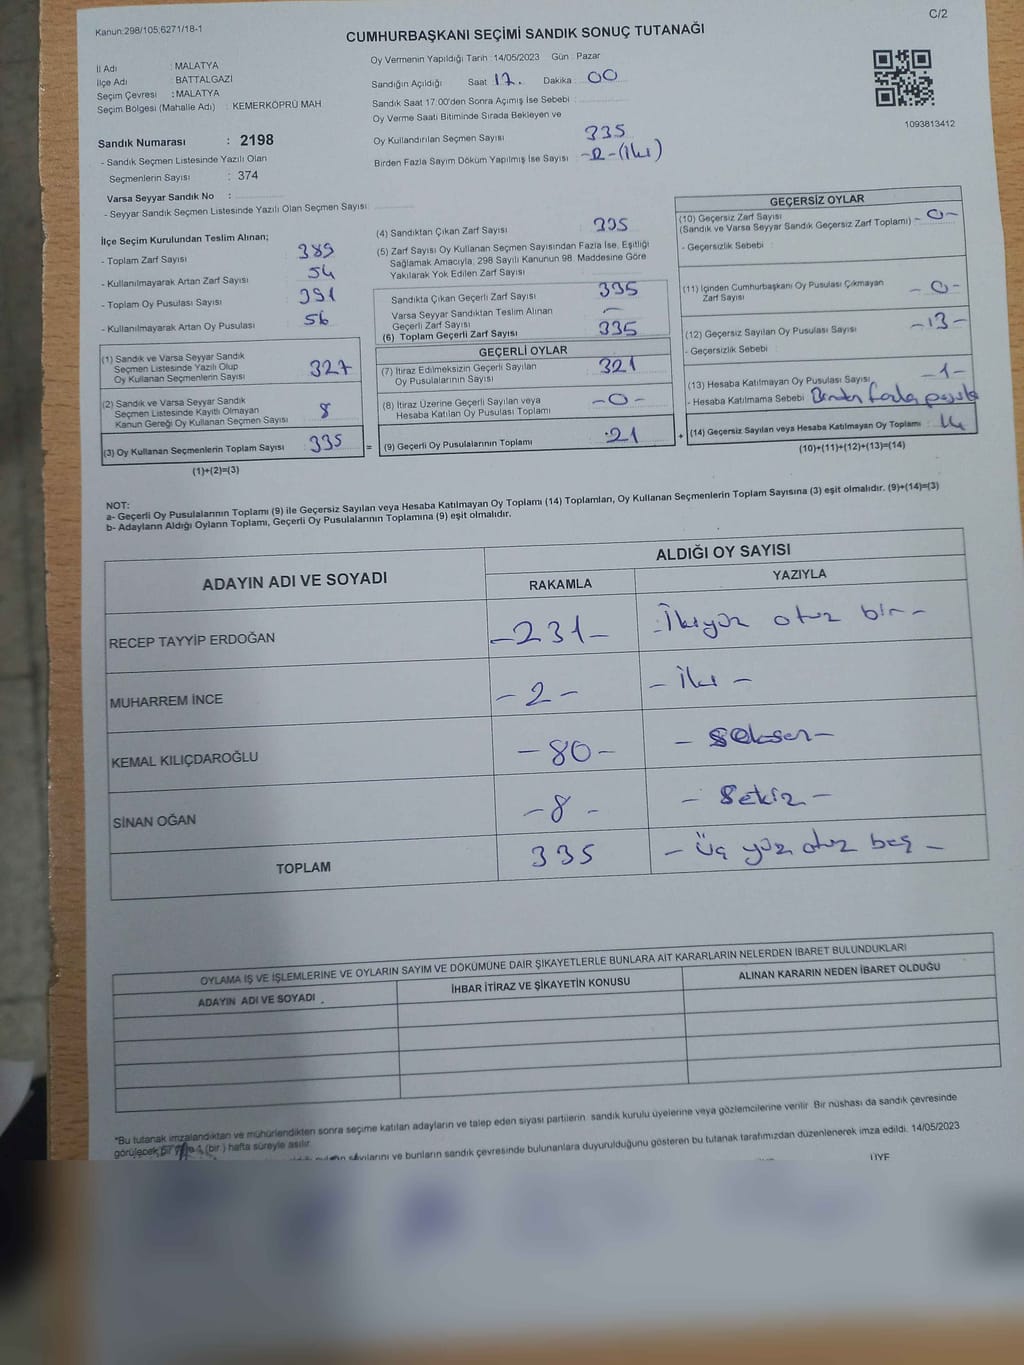 Kanun:298/105;6271/18-1
C/2
CUMHURBAŞKANI SEÇİMİ SANDIK SONUÇ TUTANAĞI
İl Adı : MALATYA
İlçe Adı : BATTALGAZİ
Seçim Çevresi : MALATYA
Seçim Bölgesi (Mahalle Adı) : KEMERKÖPRÜ MAH
Sandık Numarası : 2198
- Sandık Seçmen Listesinde Yazılı Olan
Seçmenlerin Sayısı : 374
Varsa Seyyar Sandık No :
- Seyyar Sandık Seçmen Listesinde Yazılı Olan Seçmen Sayısı:
Oy Vermenin Yapıldığı Tarih :14/05/2023 Gün : Pazar
Sandığın Açıldığı Saat 17. Dakika : 00
Sandık Saat 17.00'den Sonra Açımış İse Sebebi :
Oy Verme Saati Bitiminde Sırada Bekleyen ve
Oy Kullandırılan Seçmen Sayısı 335
Birden Fazla Sayım Döküm Yapılmış İse Sayısı -2-(İki)
1093813412
İlçe Seçim Kurulundan Teslim Alınan;
- Toplam Zarf Sayısı : 389
- Kullanılmayarak Artan Zarf Sayısı : 54
- Toplam Oy Pusulası Sayısı : 391
- Kullanılmayarak Artan Oy Pusulası : 56
(1) Sandık ve Varsa Seyyar Sandık
Seçmen Listesinde Yazılı Olup
Oy Kullanan Seçmenlerin Sayısı : 327
(2) Sandık ve Varsa Seyyar Sandık
Seçmen Listesinde Kayıtlı Olmayan
Kanun Gereği Oy Kullanan Seçmen Sayısı : 8
(3) Oy Kullanan Seçmenlerin Toplam Sayısı : 335
=
(1)+(2)=(3)
(4) Sandıktan Çıkan Zarf Sayısı : 335
(5) Zarf Sayısı Oy Kullanan Seçmen Sayısından Fazla İse, Eşitliği
Sağlamak Amacıyla; 298 Sayılı Kanunun 98. Maddesine Göre
Yakılarak Yok Edilen Zarf Sayısı :
Sandıkta Çıkan Geçerli Zarf Sayısı : 335
Varsa Seyyar Sandıktan Teslim Alınan
Geçerli Zarf Sayısı : —
(6) Toplam Geçerli Zarf Sayısı : 335
GEÇERLİ OYLAR
(7) İtiraz Edilmeksizin Geçerli Sayılan
Oy Pusulalarının Sayısı : 321
(8) İtiraz Üzerine Geçerli Sayılan veya
Hesaba Katılan Oy Pusulası Toplamı : -0-
(9) Geçerli Oy Pusulalarının Toplamı : 21
+
GEÇERSİZ OYLAR
(10) Geçersiz Zarf Sayısı
(Sandık ve Varsa Seyyar Sandık Geçersiz Zarf Toplamı) -0-
- Geçersizlik Sebebi :
(11) İçinden Cumhurbaşkanı Oy Pusulası Çıkmayan
Zarf Sayısı -0-
(12) Geçersiz Sayılan Oy Pusulası Sayısı -13-
- Geçersizlik Sebebi :
(13) Hesaba Katılmayan Oy Pusulası Sayısı -1-
- Hesaba Katılmama Sebebi Birden fazla pusula
(14) Geçersiz Sayılan veya Hesaba Katılmayan Oy Toplamı : 14
(10)+(11)+(12)+(13)=(14)
NOT:
a- Geçerli Oy Pusulalarının Toplamı (9) ile Geçersiz Sayılan veya Hesaba Katılmayan Oy Toplamı (14) Toplamları, Oy Kullanan Seçmenlerin Toplam Sayısına (3) eşit olmalıdır. (9)+(14)=(3)
b- Adayların Aldığı Oyların Toplamı, Geçerli Oy Pusulalarının Toplamına (9) eşit olmalıdır.
ADAYIN ADI VE SOYADI
ALDIĞI OY SAYISI
RAKAMLA YAZIYLA
RECEP TAYYİP ERDOĞAN -231- -İkiyüz otuz bir-
MUHARREM İNCE -2- -İki-
KEMAL KILIÇDAROĞLU -80- -seksen-
SİNAN OĞAN -8- -Sekiz-
TOPLAM 335 -Üç yüz otuz beş-
OYLAMA İŞ VE İŞLEMLERİNE VE OYLARIN SAYIM VE DÖKÜMÜNE DAİR ŞİKAYETLERLE BUNLARA AİT KARARLARIN NELERDEN İBARET BULUNDUKLARI
ADAYIN ADI VE SOYADI İHBAR İTİRAZ VE ŞİKAYETİN KONUSU ALINAN KARARIN NEDEN İBARET OLDUĞU
*Bu tutanak imzalandıktan ve mühürlendikten sonra seçime katılan adayların ve talep eden siyasi partilerin sandık kurulu üyelerine veya gözlemcilerine verilir. Bir nüshası da sandık çevresinde
görülecek bir (bir ) hafta süreyle asılır.
sayılarını ve bunların sandık çevresinde bulunanlara duyurulduğunu gösteren bu tutanak tarafımızdan düzenlenerek imza edildi. 14/05/2023
ÜYE